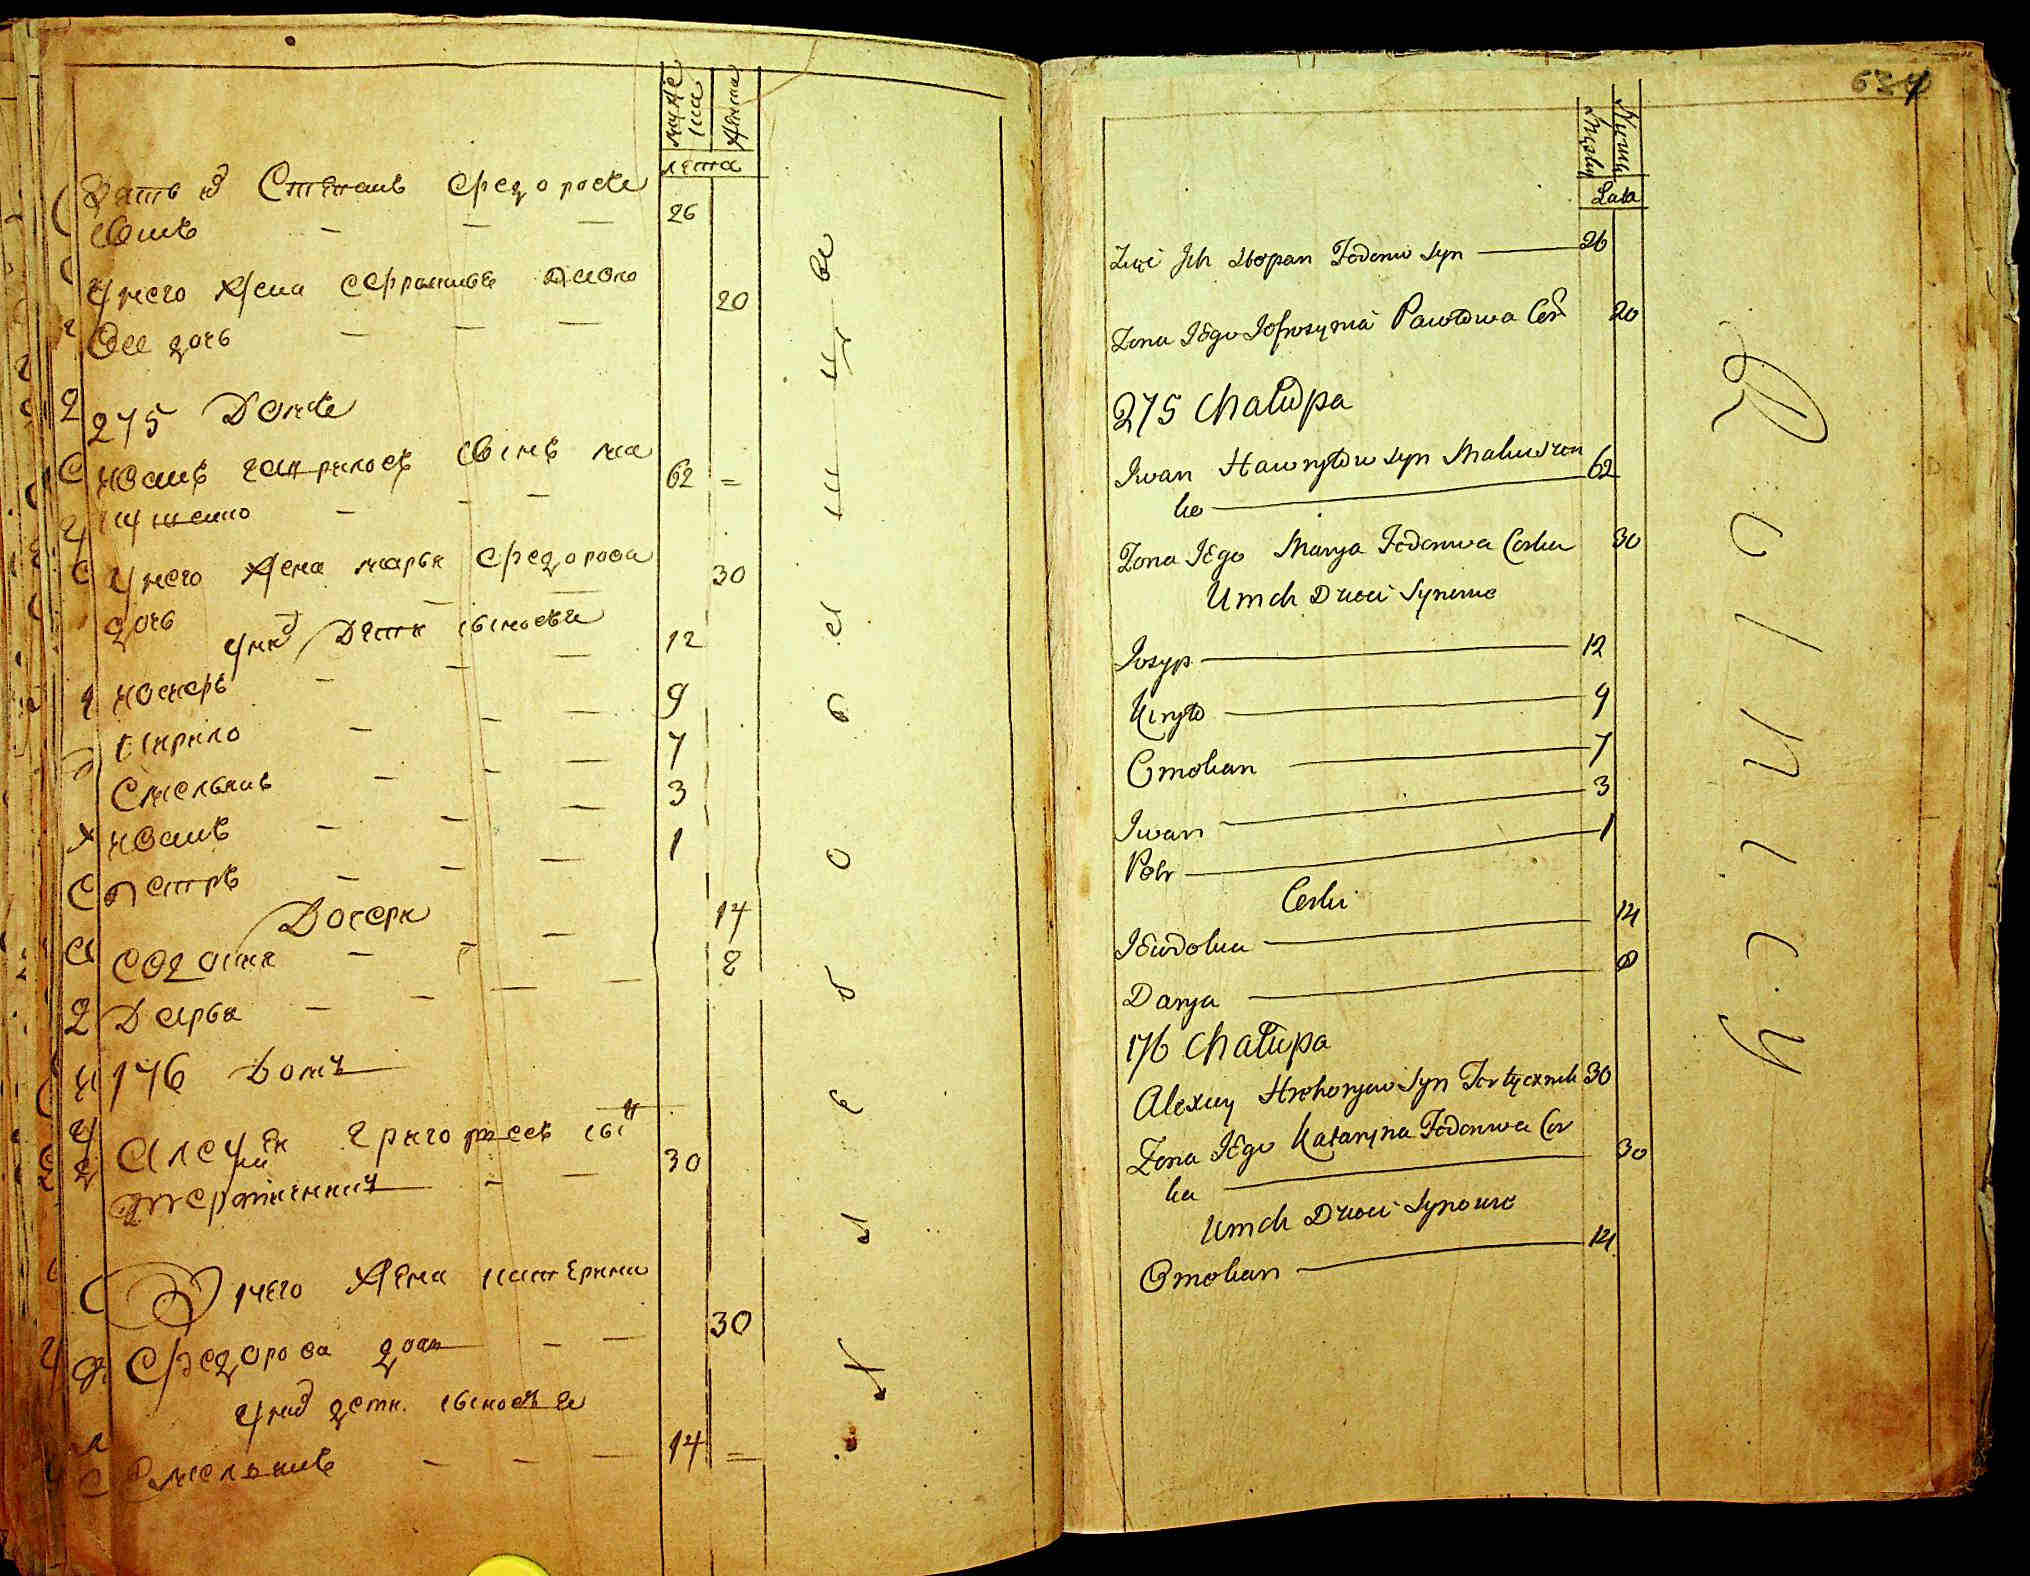 муже
ска
женска
лета
Зять их Степанъ Федоровъ
сынъ 26
У него жена Ефросинья Павло
ва дочь 20
275 Домъ
Иванъ Гавриловъ сынъ Ма
62 =
У него жена Марья Федорова
дочь 30
У них дети сыновья
Иосиеръ 12
Кирило 9
Омельянъ 7
Иванъ 3
Петръ 1
Дочери
Евдокия 14
Дарья 8
176 Домъ
Алексей Григорьевъ сынъ
30
У него жена Катерина
Федорова дочь 30
У них дети сыновья
Омельянъ 14 =
Хлебопашцы
634
Męsky
Żensky
Lata
Zięć Jch Stepan Fedorow Syn 26
Zona JEgo Jefrosynia Pawłowa Cor 20
275 Chałupa
Jwan Hawryłow syn Maluszen
ko 62
Zona JEgo Marya Fedorowa Corka 30
U nich Dzieci Synowie
Josyp 12
Kiryło 9
Omelian 7
Jwan 3
Petr 1
Corki
JEwdokia 14
Darya 8
176 Chałupa
Alexiey Hrehoryew Syn 30
Zona JEgo Kataryna Fedorowa Cor
ka 30
U nich Dzieci Synowie
Omelian 14
Rolnicy